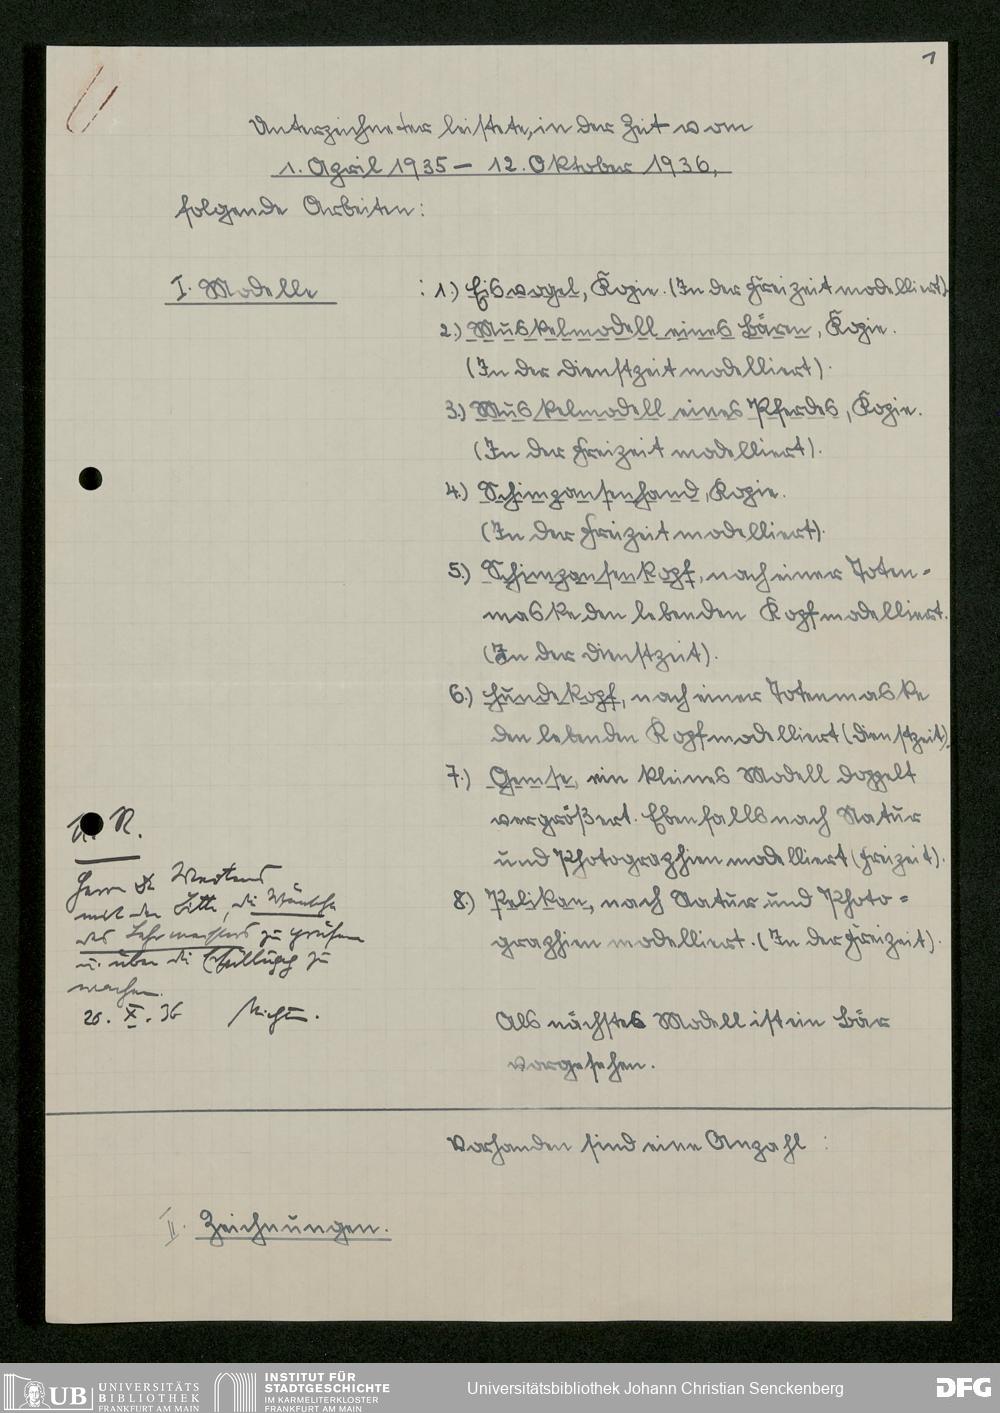 1
Unterzeichneter leistete, in der Zeit vom
1. April 1935 – 12. Oktober 1936,
folgende Arbeiten:
I. Modelle : 1.) Eisvogel, Kopie. (In der Freizeit modelliert)
2.) Muskelmodell eines Bären, Kopie.
(In der Dienstzeit modelliert).
3.) Muskelmodell eines Pferdes, Kopie.
(In der Freizeit modelliert).
4.) Schimpansenhand, Kopie.
(In der Freizeit modelliert).
5.) Schimpansenkopf, nach einer Toten=
maske den lebenden Kopf modelliert.
(In der Dienstzeit).
6.) Hundekopf, nach einer Totenmaske
den lebenden Kopf modelliert (Dienstzeit).
7.) Gemse, ein kleines Modell doppelt
vergrößert. Ebenfalls nach Natur
und Photographien modelliert (Freizeit).
8.) Pelikan, nach Natur und Photo=
graphien modelliert. (In der Freizeit).
Als nächstes Modell ist ein Bär
vorgesehen.
U. R.
Herrn Dr.
mit der Bitte, die Wünsche
des Lehrmeisters zu prüfen
u. über die Erfüllung zu
wachen.
20. X. 36
Vorhanden sind eine Anzahl :
II. Zeichnungen.
UB UNIVERSITÄTS
BIBLIOTHEK
FRANKFURT AM MAIN
INSTITUT FÜR
STADTGESCHICHTE
IM KARMELITERKLOSTER
FRANKFURT AM MAIN
Universitätsbibliothek Johann Christian Senckenberg
DFG